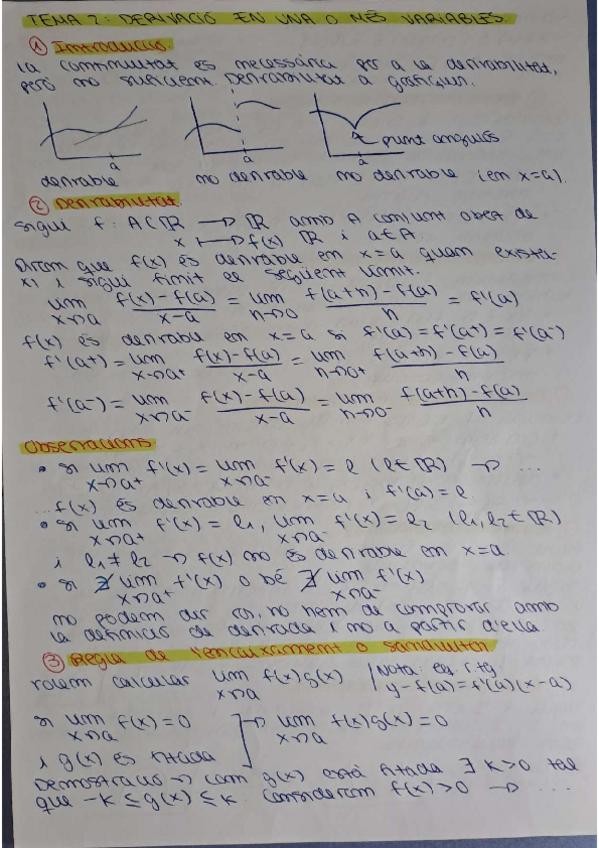 TEMA 2: DERIVACIÓ EN UNA O MÉS VARIABLES.
① Introducció.
La continuïtat és necessària per a la derivabilitat,
però no suficient. Derivabilitat a gràfiques.
a a a punt angulós
derivable no derivable no derivable (en x=a).
② Derivabilitat.
Sigui f: A⊂ℝ → ℝ amb A conjunt obert de
x ↦ f(x) ℝ i a∈A.
Direm que f(x) és derivable en x=a quan existei-
xi i sigui finit el següent límit.
lim x→a (f(x)-f(a))/(x-a) = lim h→0 (f(a+h)-f(a))/h = f'(a)
f(x) és derivable en x=a si f'(a)=f'(a+)=f'(a-)
f'(a+) = lim x→a+ (f(x)-f(a))/(x-a) = lim h→0+ (f(a+h)-f(a))/h
f'(a-) = lim x→a- (f(x)-f(a))/(x-a) = lim h→0- (f(a+h)-f(a))/h
Observacions
• Si lim x→a+ f'(x) = lim x→a- f'(x) = l (l∈ℝ) → ...
...f(x) és derivable en x=a i f'(a)=l.
• Si lim x→a+ f'(x) = l1, lim x→a- f'(x) = l2 (l1,l2∈ℝ)
i l1≠l2 → f(x) no és derivable en x=a
• Si ∄ lim x→a+ f'(x) o bé ∄ lim x→a- f'(x)
no podem dir res, ho hem de comprovar amb
la definició de derivada i no a partir d'ella.
③ Regla de l'encaixament o sandwitch
Volem calcular lim x→a f(x)g(x) | Nota: eq. r.tg:
y-f(a)=f'(a)(x-a)
Si lim x→a f(x)=0
i g(x) és fitada → lim x→a f(x)g(x)=0
Demostració → com g(x) està fitada ∃ k>0 tal
que -k ≤ g(x) ≤ k. Considerem f(x)>0 → ...